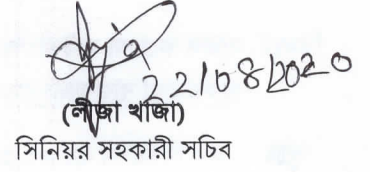 22/08/2020
(লীজা খাজা)
সিনিয়র সহকারী সচিব